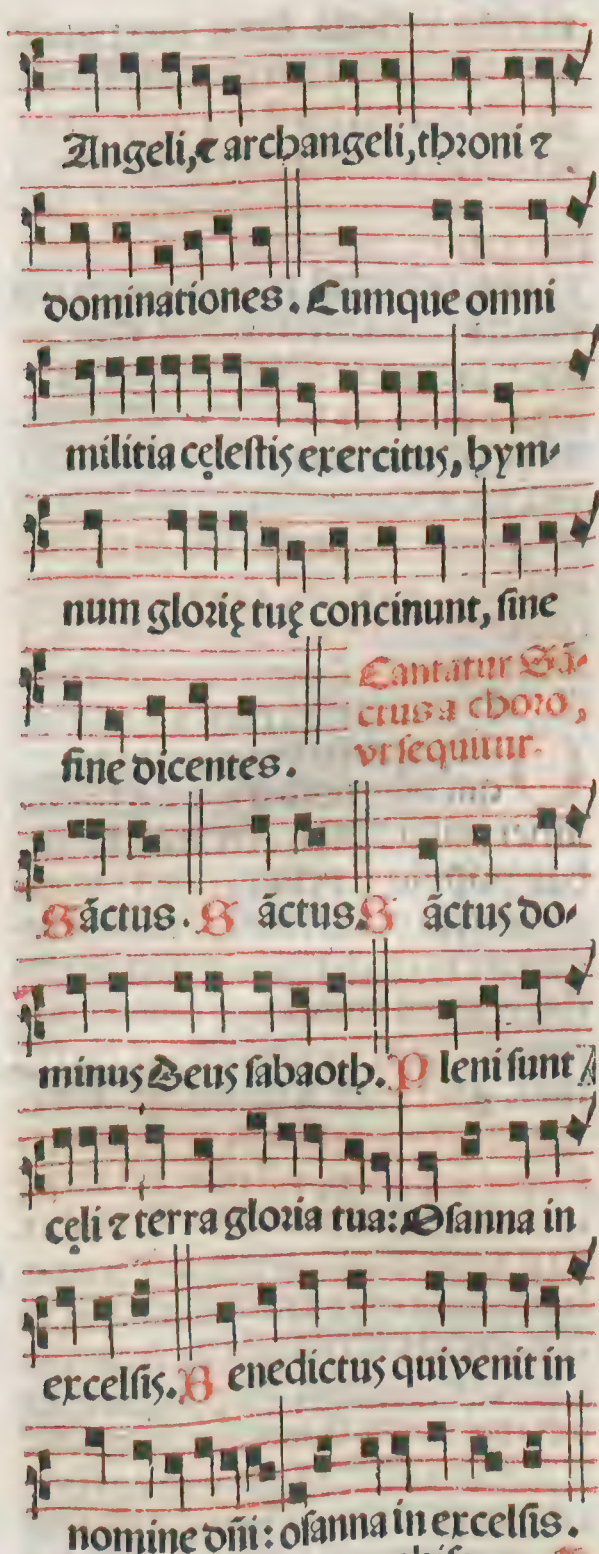 Angeli, ⁊ archangeli, throni ⁊
dominationes. Cumque omni
militia cęlestis exercitus, hym-
num glorię tuę concinunt, sine
fine dicentes.
Cantatur Sā-
ctus a choro,
vt sequitur.
Sāctus. Sāctus. Sāctus do-
minus Deus sabaoth. Pleni sunt
cęli ⁊ terra gloria tua: Osanna in
excelsis. Benedictus qui venit in
nomine dñi: osanna in excelsis.